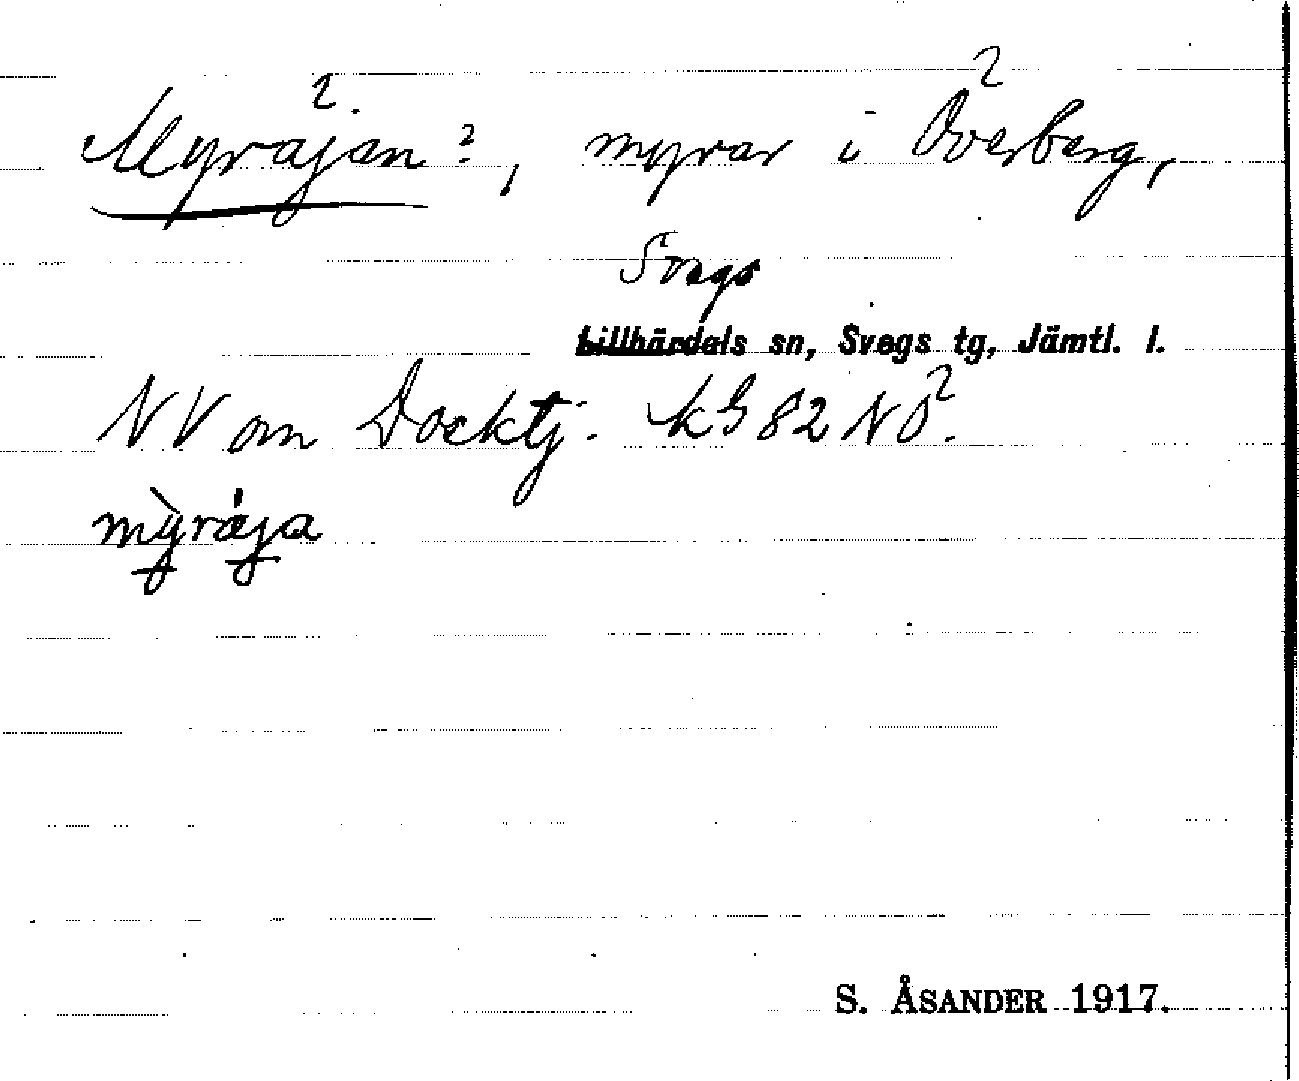 2. 2
Myråjan ?, myrar i Överberg,
Svegs
Lillhärdals sn, Svegs tg, Jämtl. l.
NV om Docktj. kG 82 NO2.
mỳråja
S. ÅSANDER 1917.